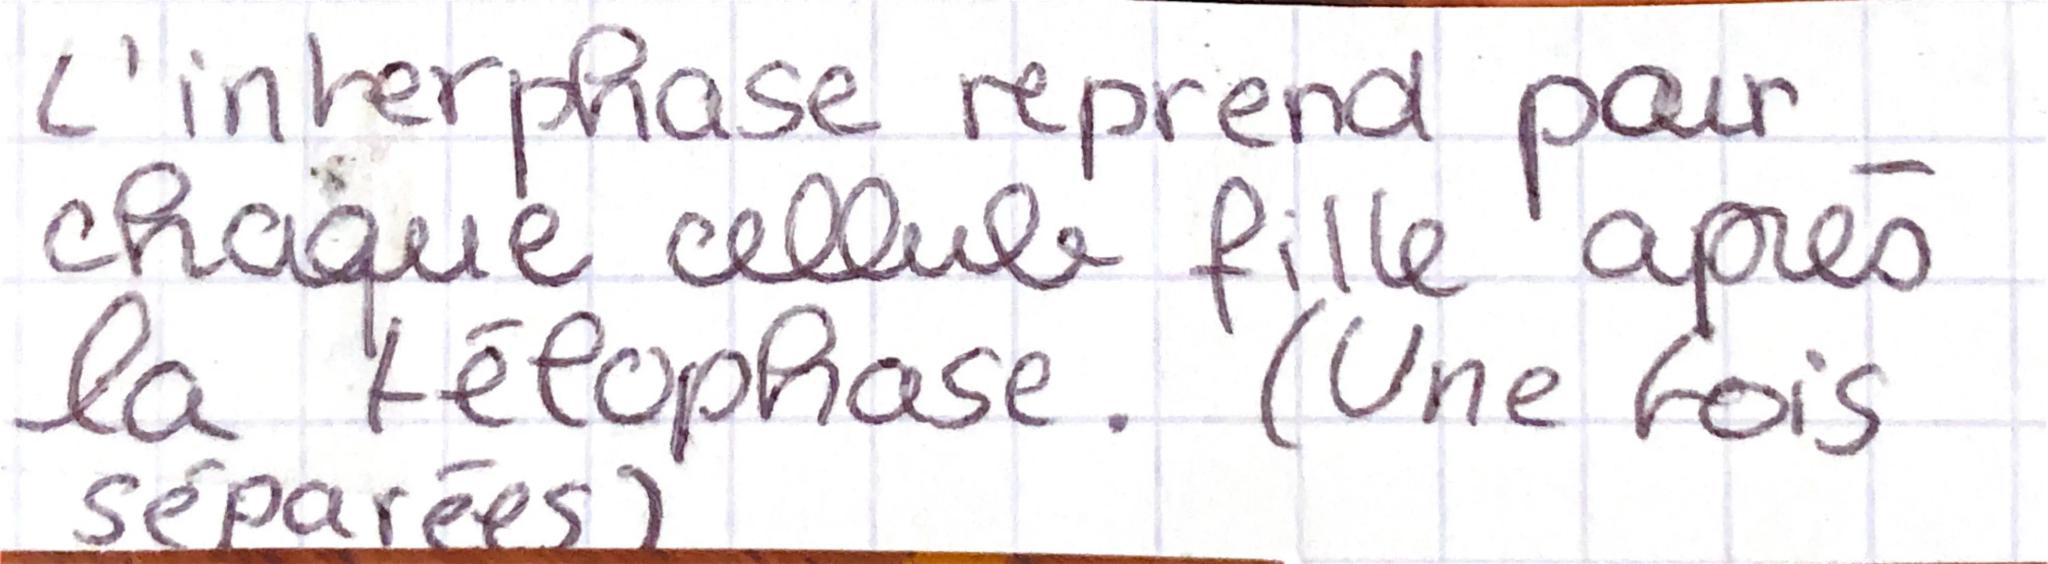 L'interphase reprend pour
chaque cellule fille après
la télophase. (Une fois
séparées)